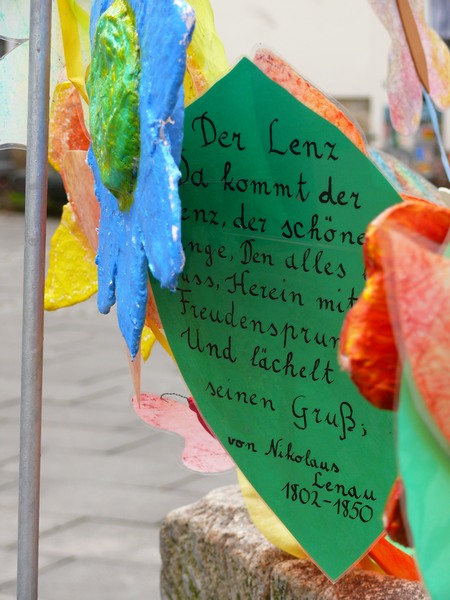 Der Lenz
Da kommt der
enz, der schöne
nge, Den alles
uss, Herein mit
Freudensprun
Und lächelt
seinen Gruß;
von Nikolaus
Lenau
1802-1850